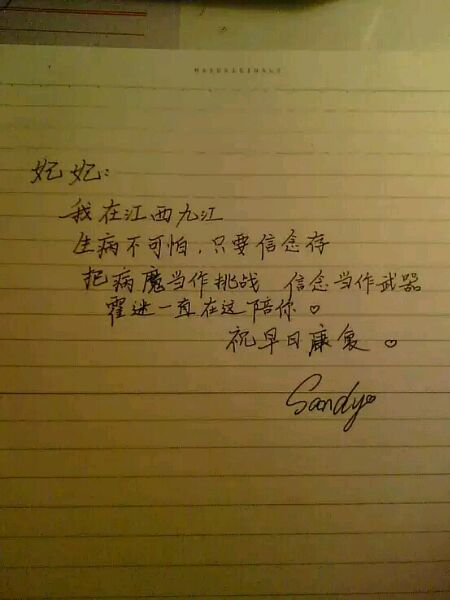 妃妃：
我在江西九江
生病不可怕，只要信念存
把病魔当作挑战 信念当作武器
霍迷一直在这陪你♡
祝早日康复♡
Sandy